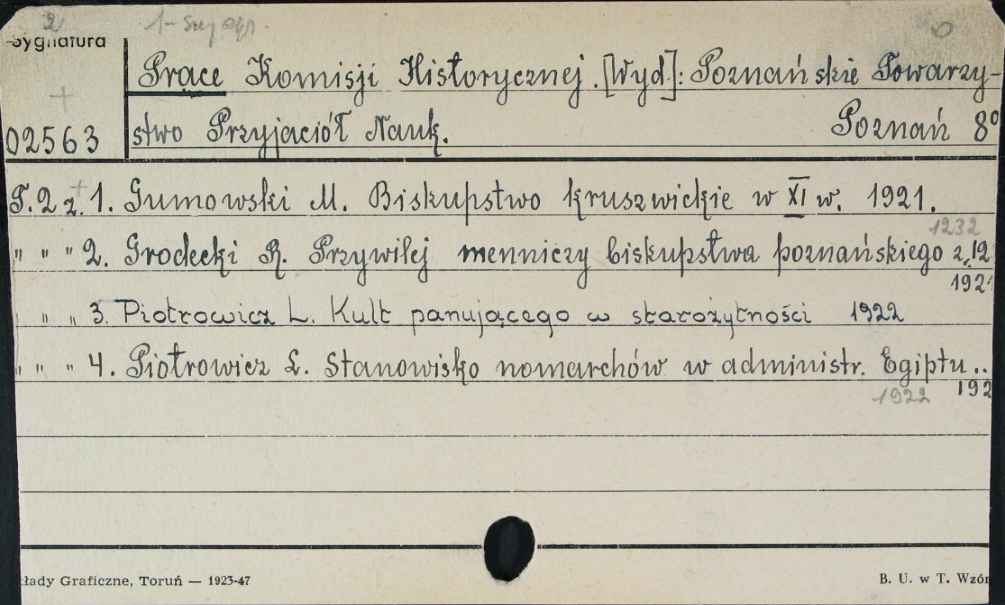 2 1-szy egz.
Sygnatura
Prace Komisji Historycznej. [Wyd]: Poznańskie Towarzy-
02563 stwo Przyjaciół Nauk. Poznań 8°
T. 2 z. 1. Gumowski M. Biskupstwo kruszwickie w XI w. 1921.
1232
" " " 2. Grodecki R. Przywilej menniczy biskupstwa poznańskiego z 12
192
" " " 3. Piotrowicz L. Kult panującego w starożytności 1922
" " " 4. Piotrowicz L. Stanowisko nomarchów w administr. Egiptu..
1922 192
łady Graficzne, Toruń — 1923-47 B. U. w T. Wzór